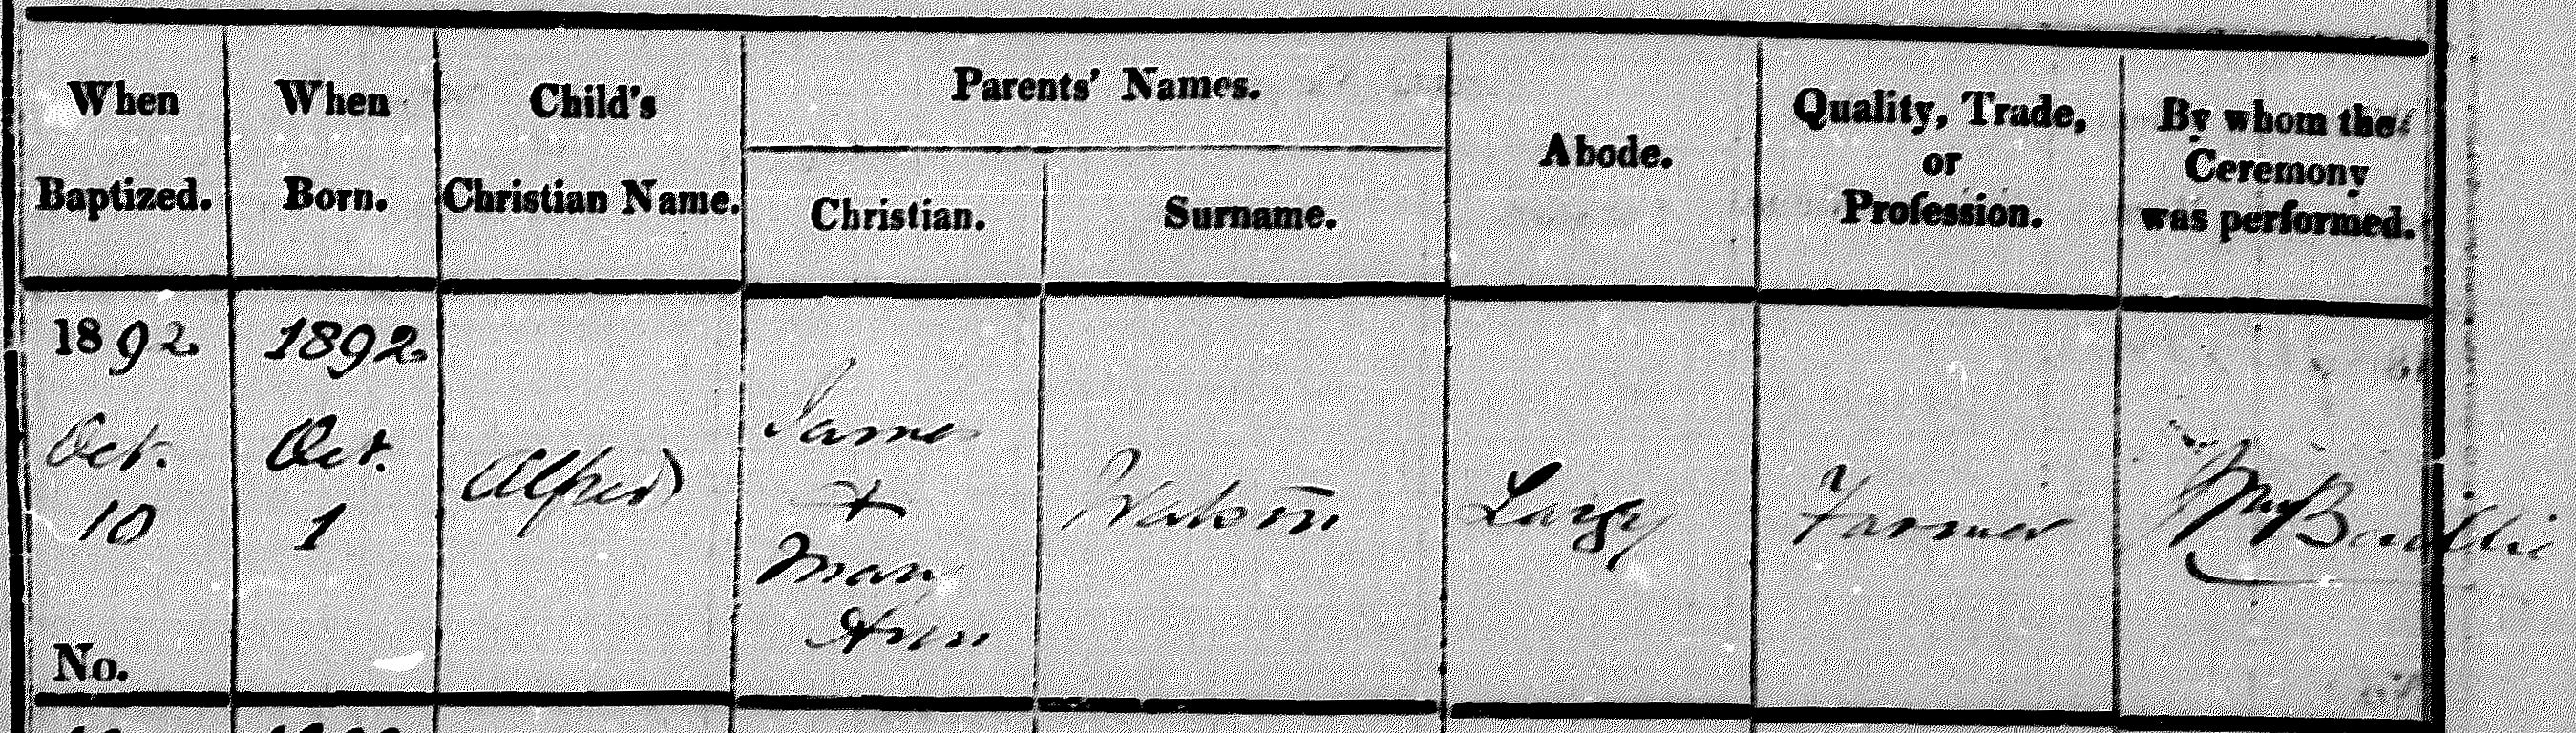 When Baptized.
When Born.
Child's Christian Name.
Parents' Names.
Christian.
Surname.
Abode.
Quality, Trade, or Profession.
By whom the Ceremony was performed.
1892
Oct.
10
No.
1892
Oct.
1
Alfred
James
+
Mary
Ann
Watson
Largy
Farmer